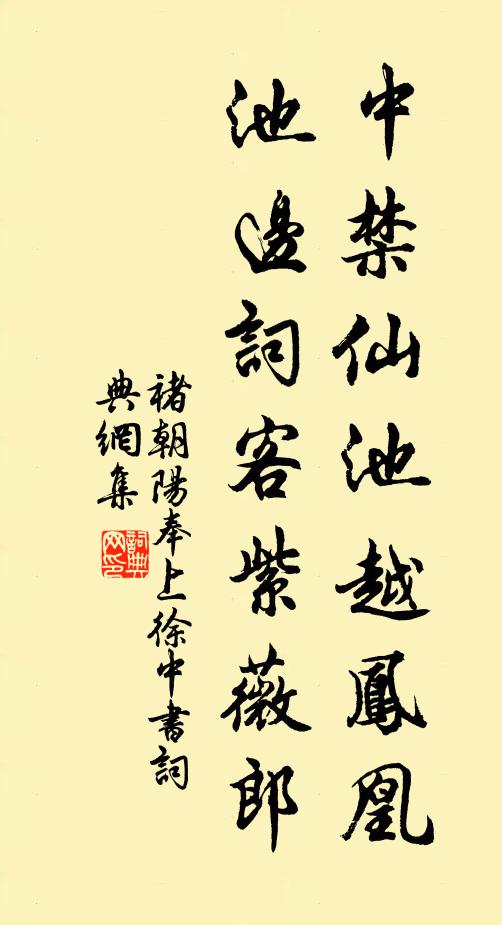 中禁仙池越鳳凰
池邊詞客紫薇郎
褚朝陽奉上徐中書詞
典網集
詞典
网印